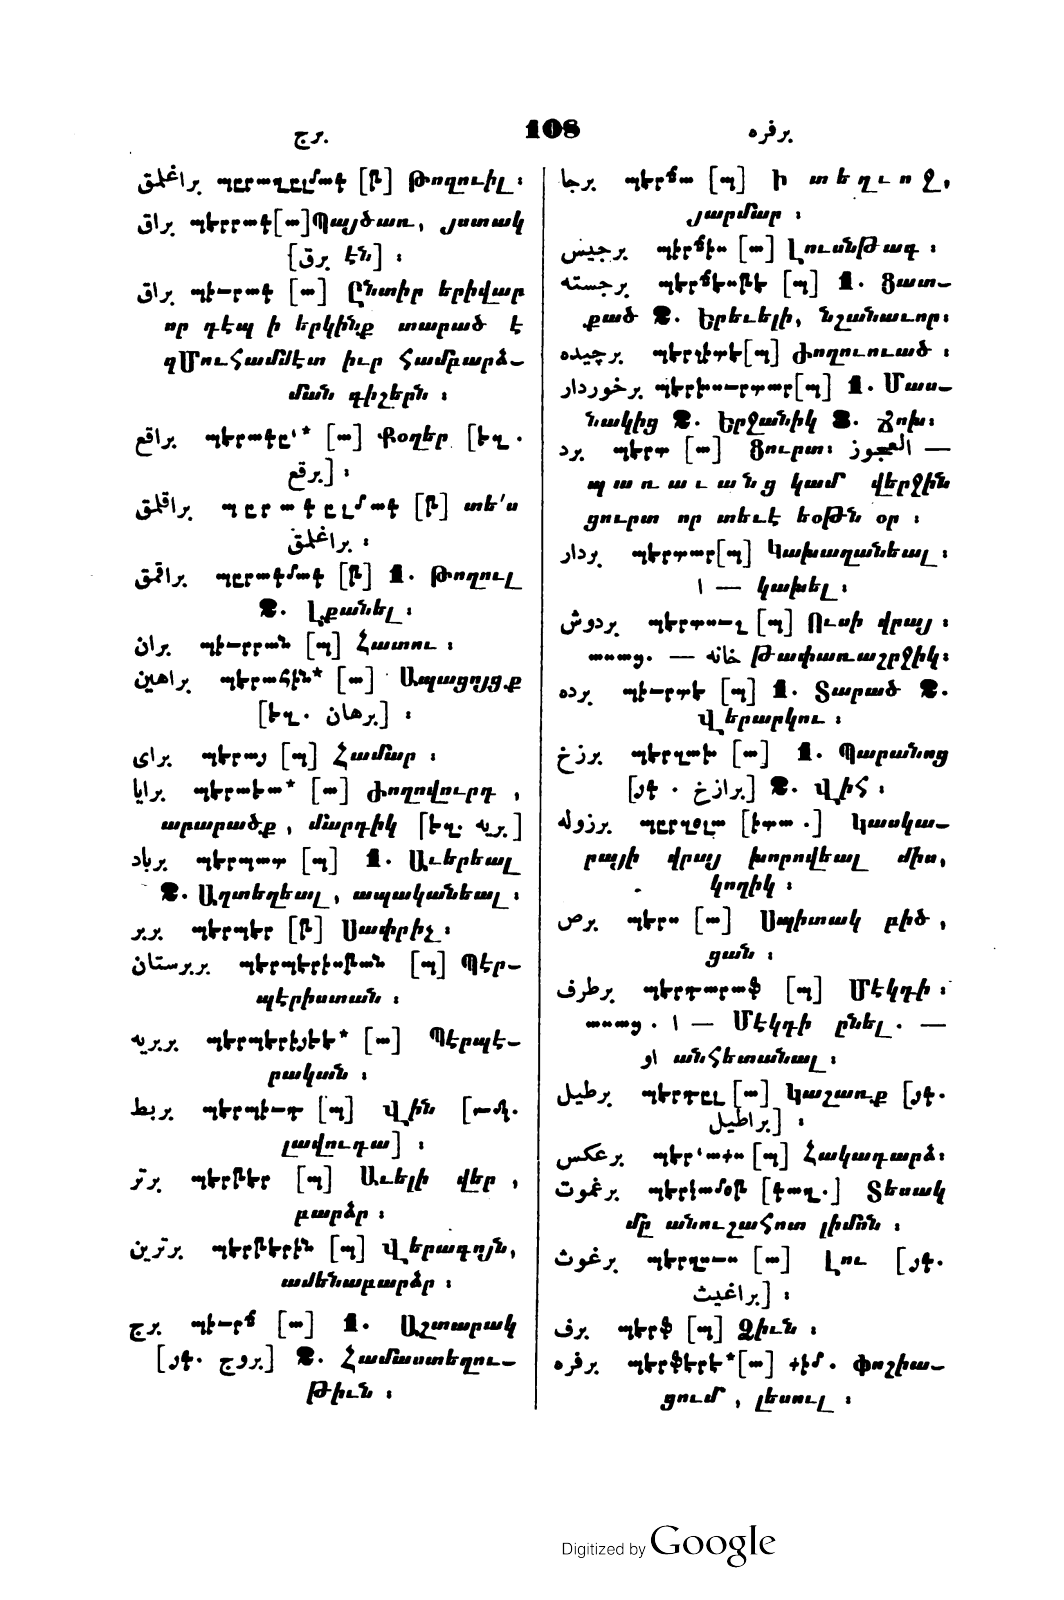 برج
108
برفره
براغلمق պըրաղըլմագ [թ] Թողուիլ ։
براق պէրրագ [ա] Պայծառ, յստակ
[برق էն] ։
براق պիւրագ [ա] Ընտիր երիվար
որ դէպ ի երկինք տարած է
զՄուհամմէտ իւր Համբարձ-
ման գիշերն ։
براقع պէրագը'* [ա] Քօղեր [եզ.
برقع] ։
براقلمق պըրագըլմագ [թ] տե՛ս
براغلمق ։
براقمق պըրագմագ [թ] 1. Թողուլ
2. Լքանել ։
بران պիւրրան [պ] Հատու ։
براهين պէրահին* [ա] Ապացոյցք
[եզ. برهان] ։
براى պէրայ [պ] Համար ։
برايا պէրաեա* [ա] Ժողովուրդ ,
արարածք , մարդիկ [եզ. بريه]
برباد պէրպատ [պ] 1. Աւերեալ
2. Աղտեղեալ , ապականեալ ։
بربر պէրպէր [թ] Սափրիչ ։
بربرستان պէրպէրիսթան [պ] Պէր-
պէրիստան ։
بربريه պէրպէրիյեէ* [ա] Պէրպէ-
րական ։
بربط պէրպիւտ [պ] Վին [
լավուդա] ։
برتر պէրթէր [պ] Աւելի վեր ,
բարձր ։
برترين պէրթէրին [պ] Վերագոյն,
ամենաբարձր ։
برج պիւրճ [ա] 1. Աշտարակ
[յգ. بروج] 2. Համաստեղու-
թիւն ։
برجا պէրճա [պ] ի տեղւոջ,
յարմար ։
برجيس պիրճիս [ա] Լուսնթագ ։
برجسته պէրճեսթէ [պ] 1. Ցատ-
քած 2. Երեւելի, նշանաւոր։
برچيده պէրչիտէ [պ] Ժողուուած ։
برخوردار պէրխուրտար [պ] 1. Մաս-
նակից 2. Երջանիկ 3. Ճոխ։
برد պէրտ [ա] Ցուրտ։ العجوز —
պառաւանց կամ վերջին
ցուրտ որ տեւէ եօթն օր ։
بردار պէրտար [պ] Կախաղանեալ ։
ا — կախել ։
بردوش պէրտուշ [պ] Ուսի վրայ ։
خانه — Թափառաշրջիկ։
برده պիւրտէ [պ] 1. Տարած 2.
Վերարկու ։
برزخ պէրզախ [ա] 1. Պարանոց
[յգ . برازخ] 2. Վիհ ։
برزوله պըրզօլա [իտա .] Կասկա-
րայի վրայ խորովեալ միս,
կողիկ ։
برص պէրս [ա] Սպիտակ բիծ ,
ցան ։
برطرف պէրտարաֆ [պ] Մէկդի ։
ا — Մէկդի ընել . —
او անհետանալ ։
برطيل պէրտըլ [ա] Կաշառք [յգ.
براطيل] ։
برعكس պէր՛աքս [պ] Հակադարձ։
برغموت պէրկամօթ [գաղ.] Տեսակ
մը անուշահոտ լիմոն ։
برغوث պէրղուս [ա] Լու [յգ.
براغيث] ։
برف պէրֆ [պ] Ձիւն ։
برفره պէրֆէրէ* [ա] քիմ. Փոշիա-
ցում , լեսուլ ։
Digitized by Google